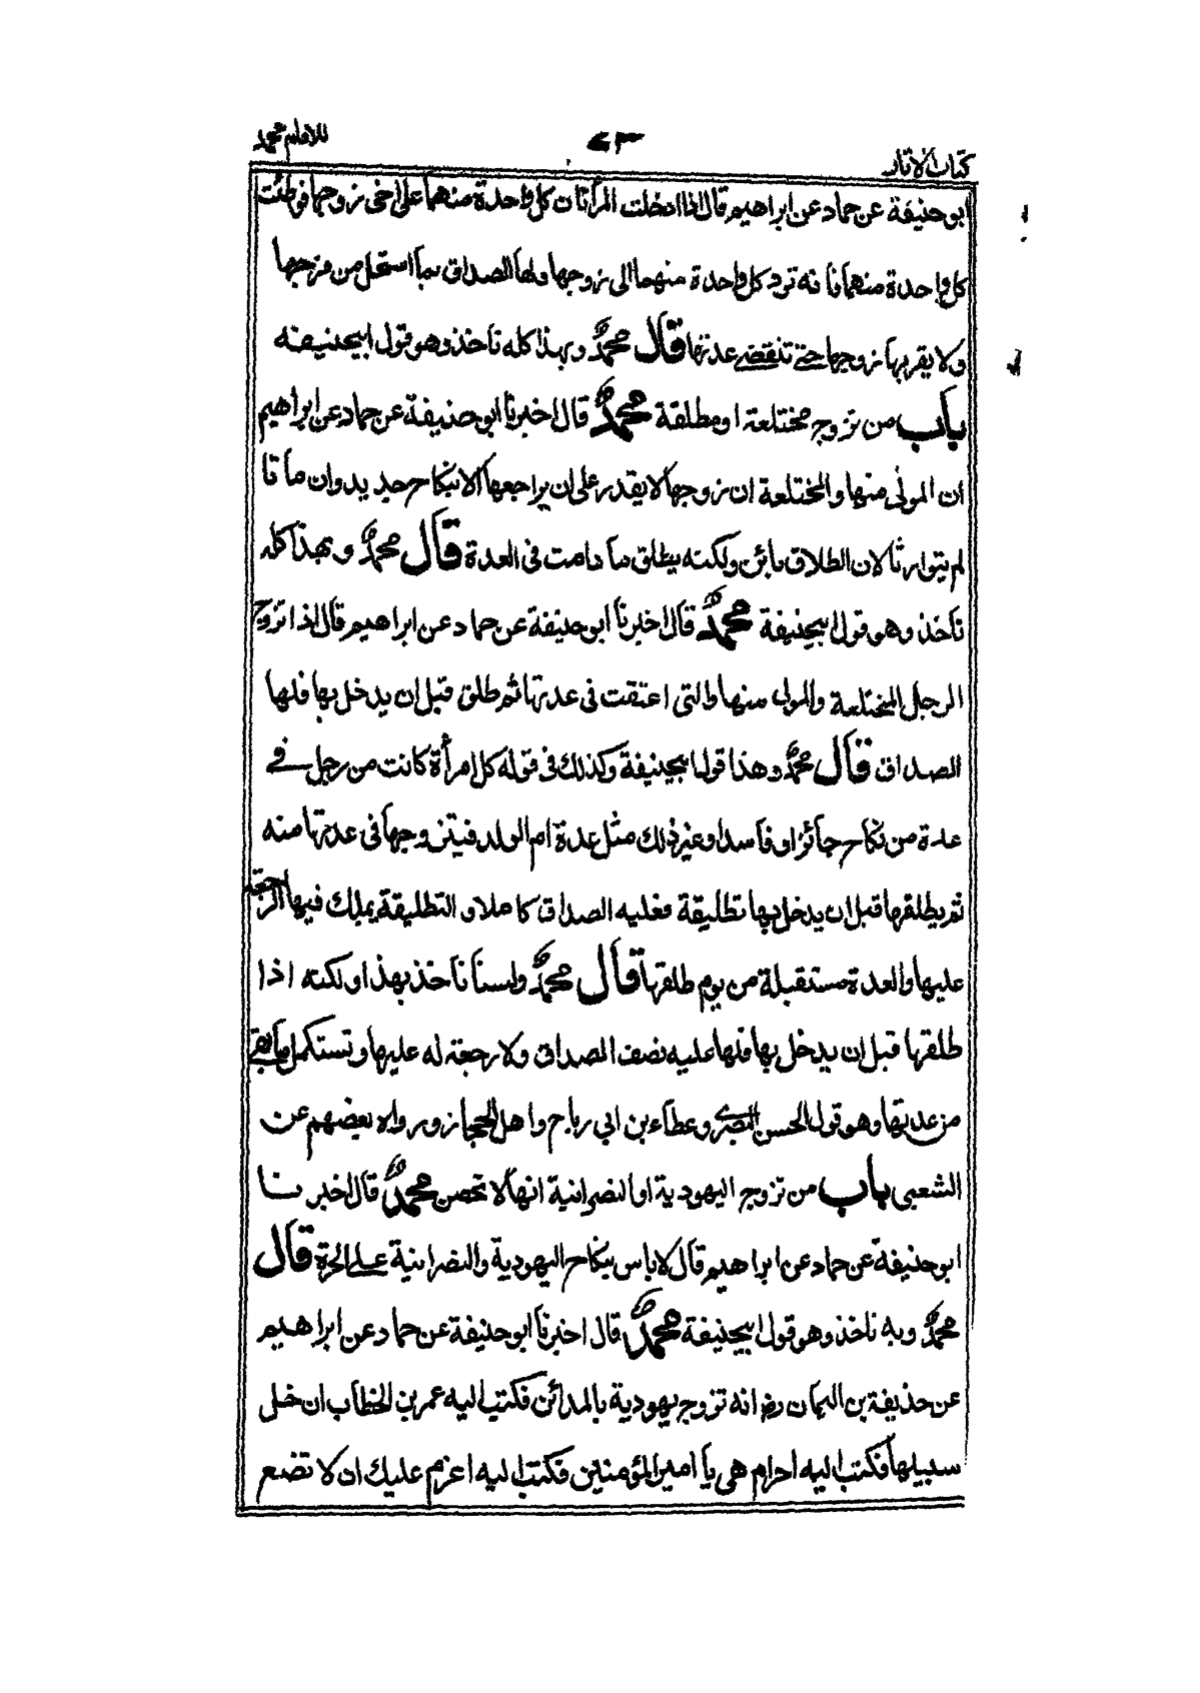 كتاب الاثار ٧٣ للامام محمد
ابو حنيفة عن حماد عن ابراهيم قال اذا ادخلت المرأتان كل واحدة منهما على اخى زوجها فوطئت
كل واحدة منهما فانه ترد كل واحدة منهما الى زوجها ولها الصداق بما استحل من فرجها
ولا يقربها زوجها حتى تنقضى عدتها قال محمد وبهذا كله نأخذ وهو قول ابيحنيفة
باب من تزوج مختلعة او مطلقة محمد قال اخبرنا ابو حنيفة عن حماد عن ابراهيم
ان المولى منها والمختلعة ان زوجها لا يقدر على ان يراجعها الا بنكاح جديد وان ماتا
لم يتوارثا لان الطلاق بائن ولكنه يطلق ما دامت فى العدة قال محمد وبهذا كله
نأخذ وهو قول ابيحنيفة محمد قال اخبرنا ابو حنيفة عن حماد عن ابراهيم قال اذا تزوج
الرجل المختلعة والمولى منها والتى اعتقت فى عدتها ثم طلق قبل ان يدخل بها فلها
الصداق قال محمد وهذا قول ابيحنيفة وكذلك فى قوله كل امرأة كانت من رجل فے
عدة من نكاح جائز او فاسد او غير ذلك مثل عدة ام الولد فيتزوجها فى عدتها منه
ثم يطلقها قبل ان يدخل بها تطليقة فعليه الصداق كاملا والتطليقة يملك فيها الرجعة
عليها والعدة مستقبلة من يوم طلقها قال محمد ولسنا نأخذ بهذا ولكنه اذا
طلقها قبل ان يدخل بها فلها عليه نصف الصداق ولا رجعة له عليها وتستكمل ما بقى
من عدتها وهو قول الحسن البصرى وعطاء بن ابى رباح واهل الحجاز ورواه بعضهم عن
الشعبى باب من تزوج اليهودية او النصرانية انها لا تحصن محمد قال اخبرنا
ابو حنيفة عن حماد عن ابراهيم قال لا باس بنكاح اليهودية والنصرانية على الحرة قال
محمد وبه ناخذ وهو قول ابيحنيفة محمد قال اخبرنا ابو حنيفة عن حماد عن ابراهيم
عن حذيفة بن اليمان رض انه تزوج يهودية بالمدائن فكتب اليه عمر بن الخطاب ان خل
سبيلها فكتب اليه احرام هى يا امير المؤمنين فكتب اليه اعزم عليك ان لا تضع